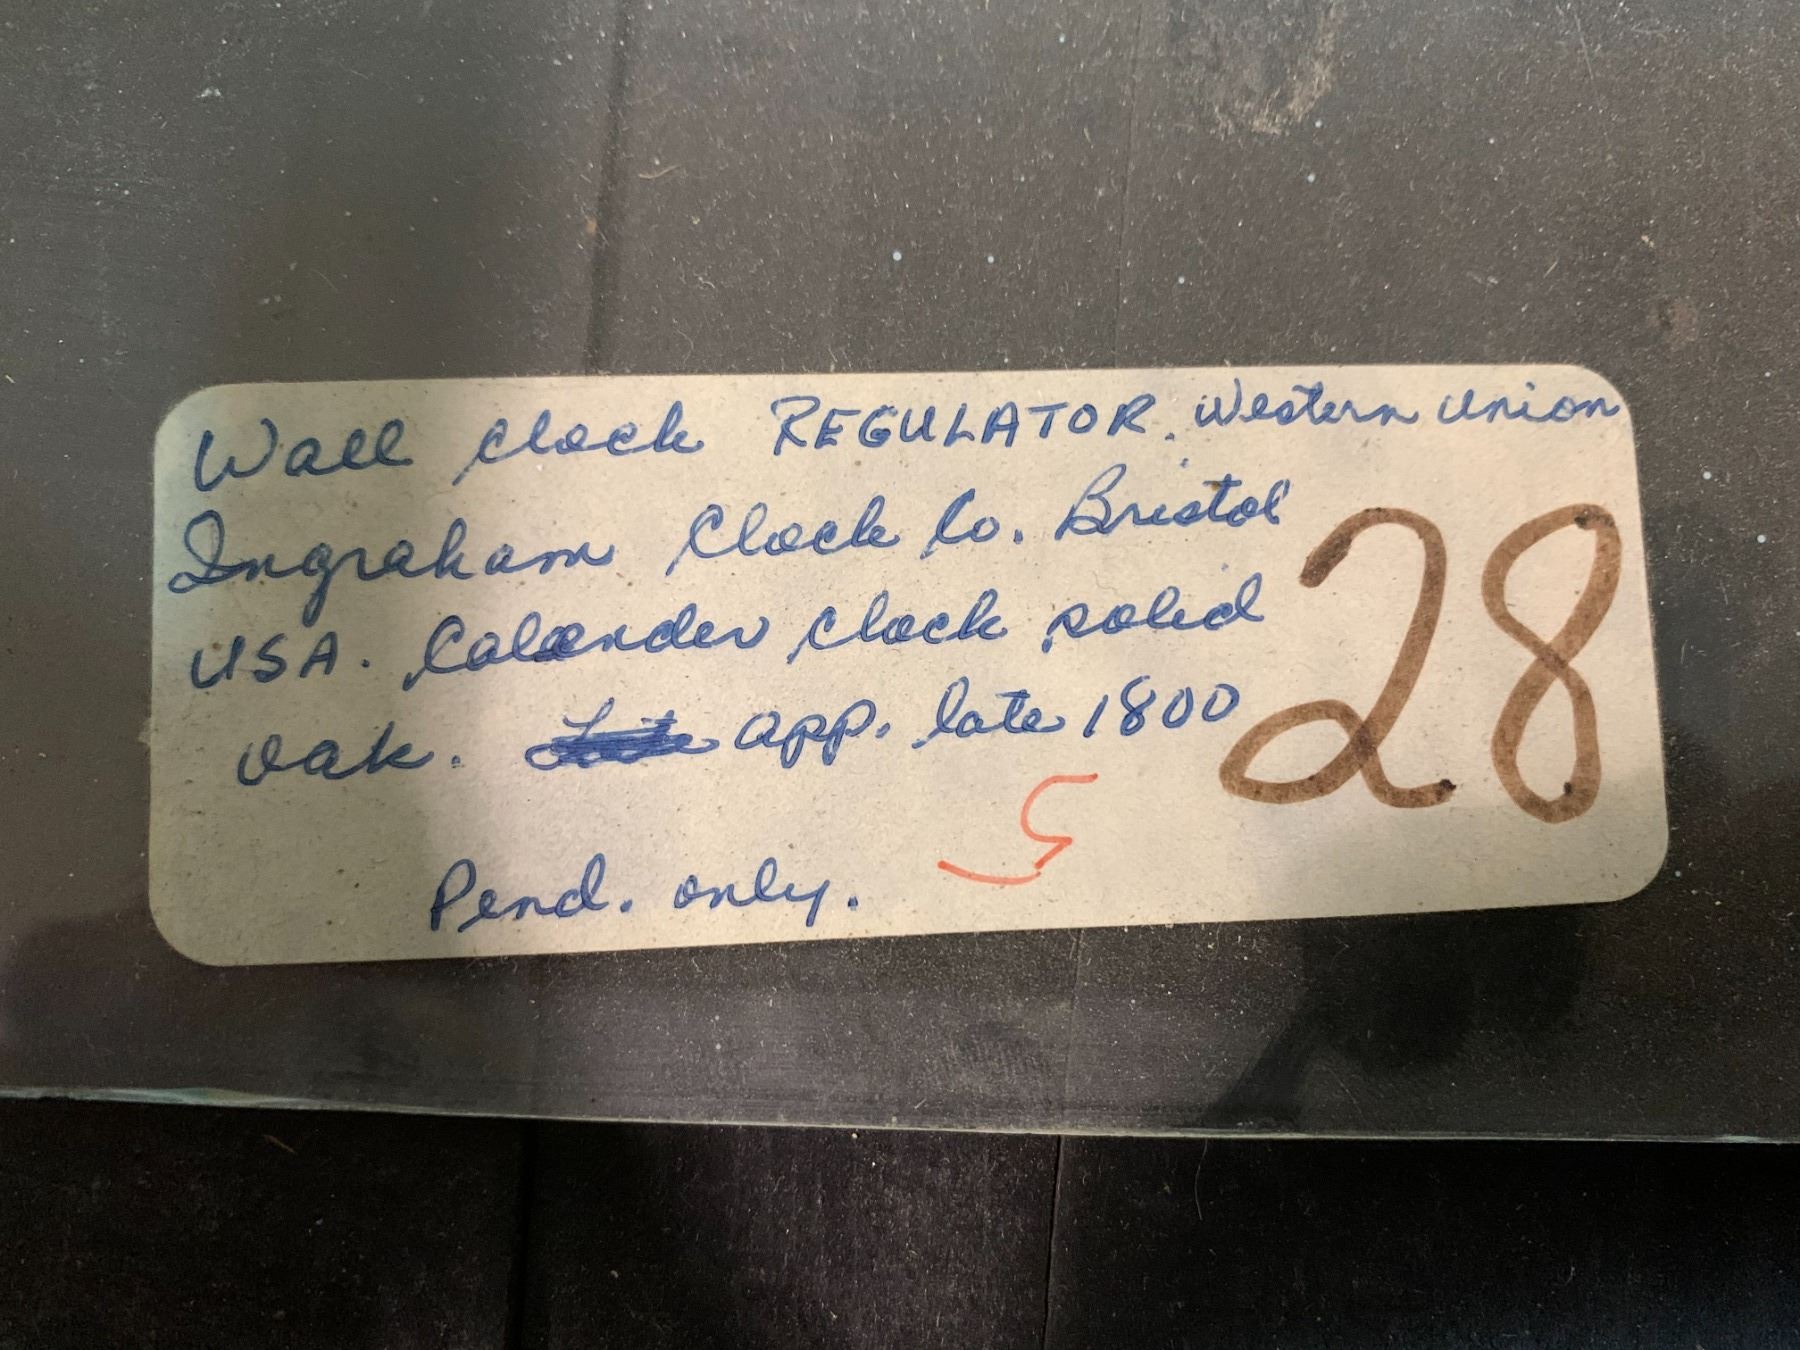 Wall clock REGULATOR. Western Union
Ingraham Clock Co. Bristol
USA. Calander clock solid
oak. app. late 1800
28
5
Pend. only.